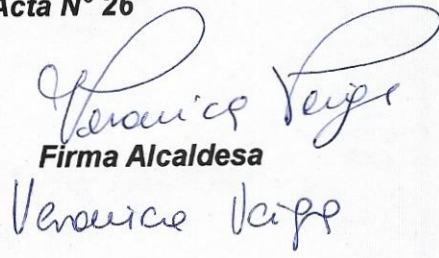 Acta N° 26
Veronica Veiga
Firma Alcaldesa
Veronica Veiga